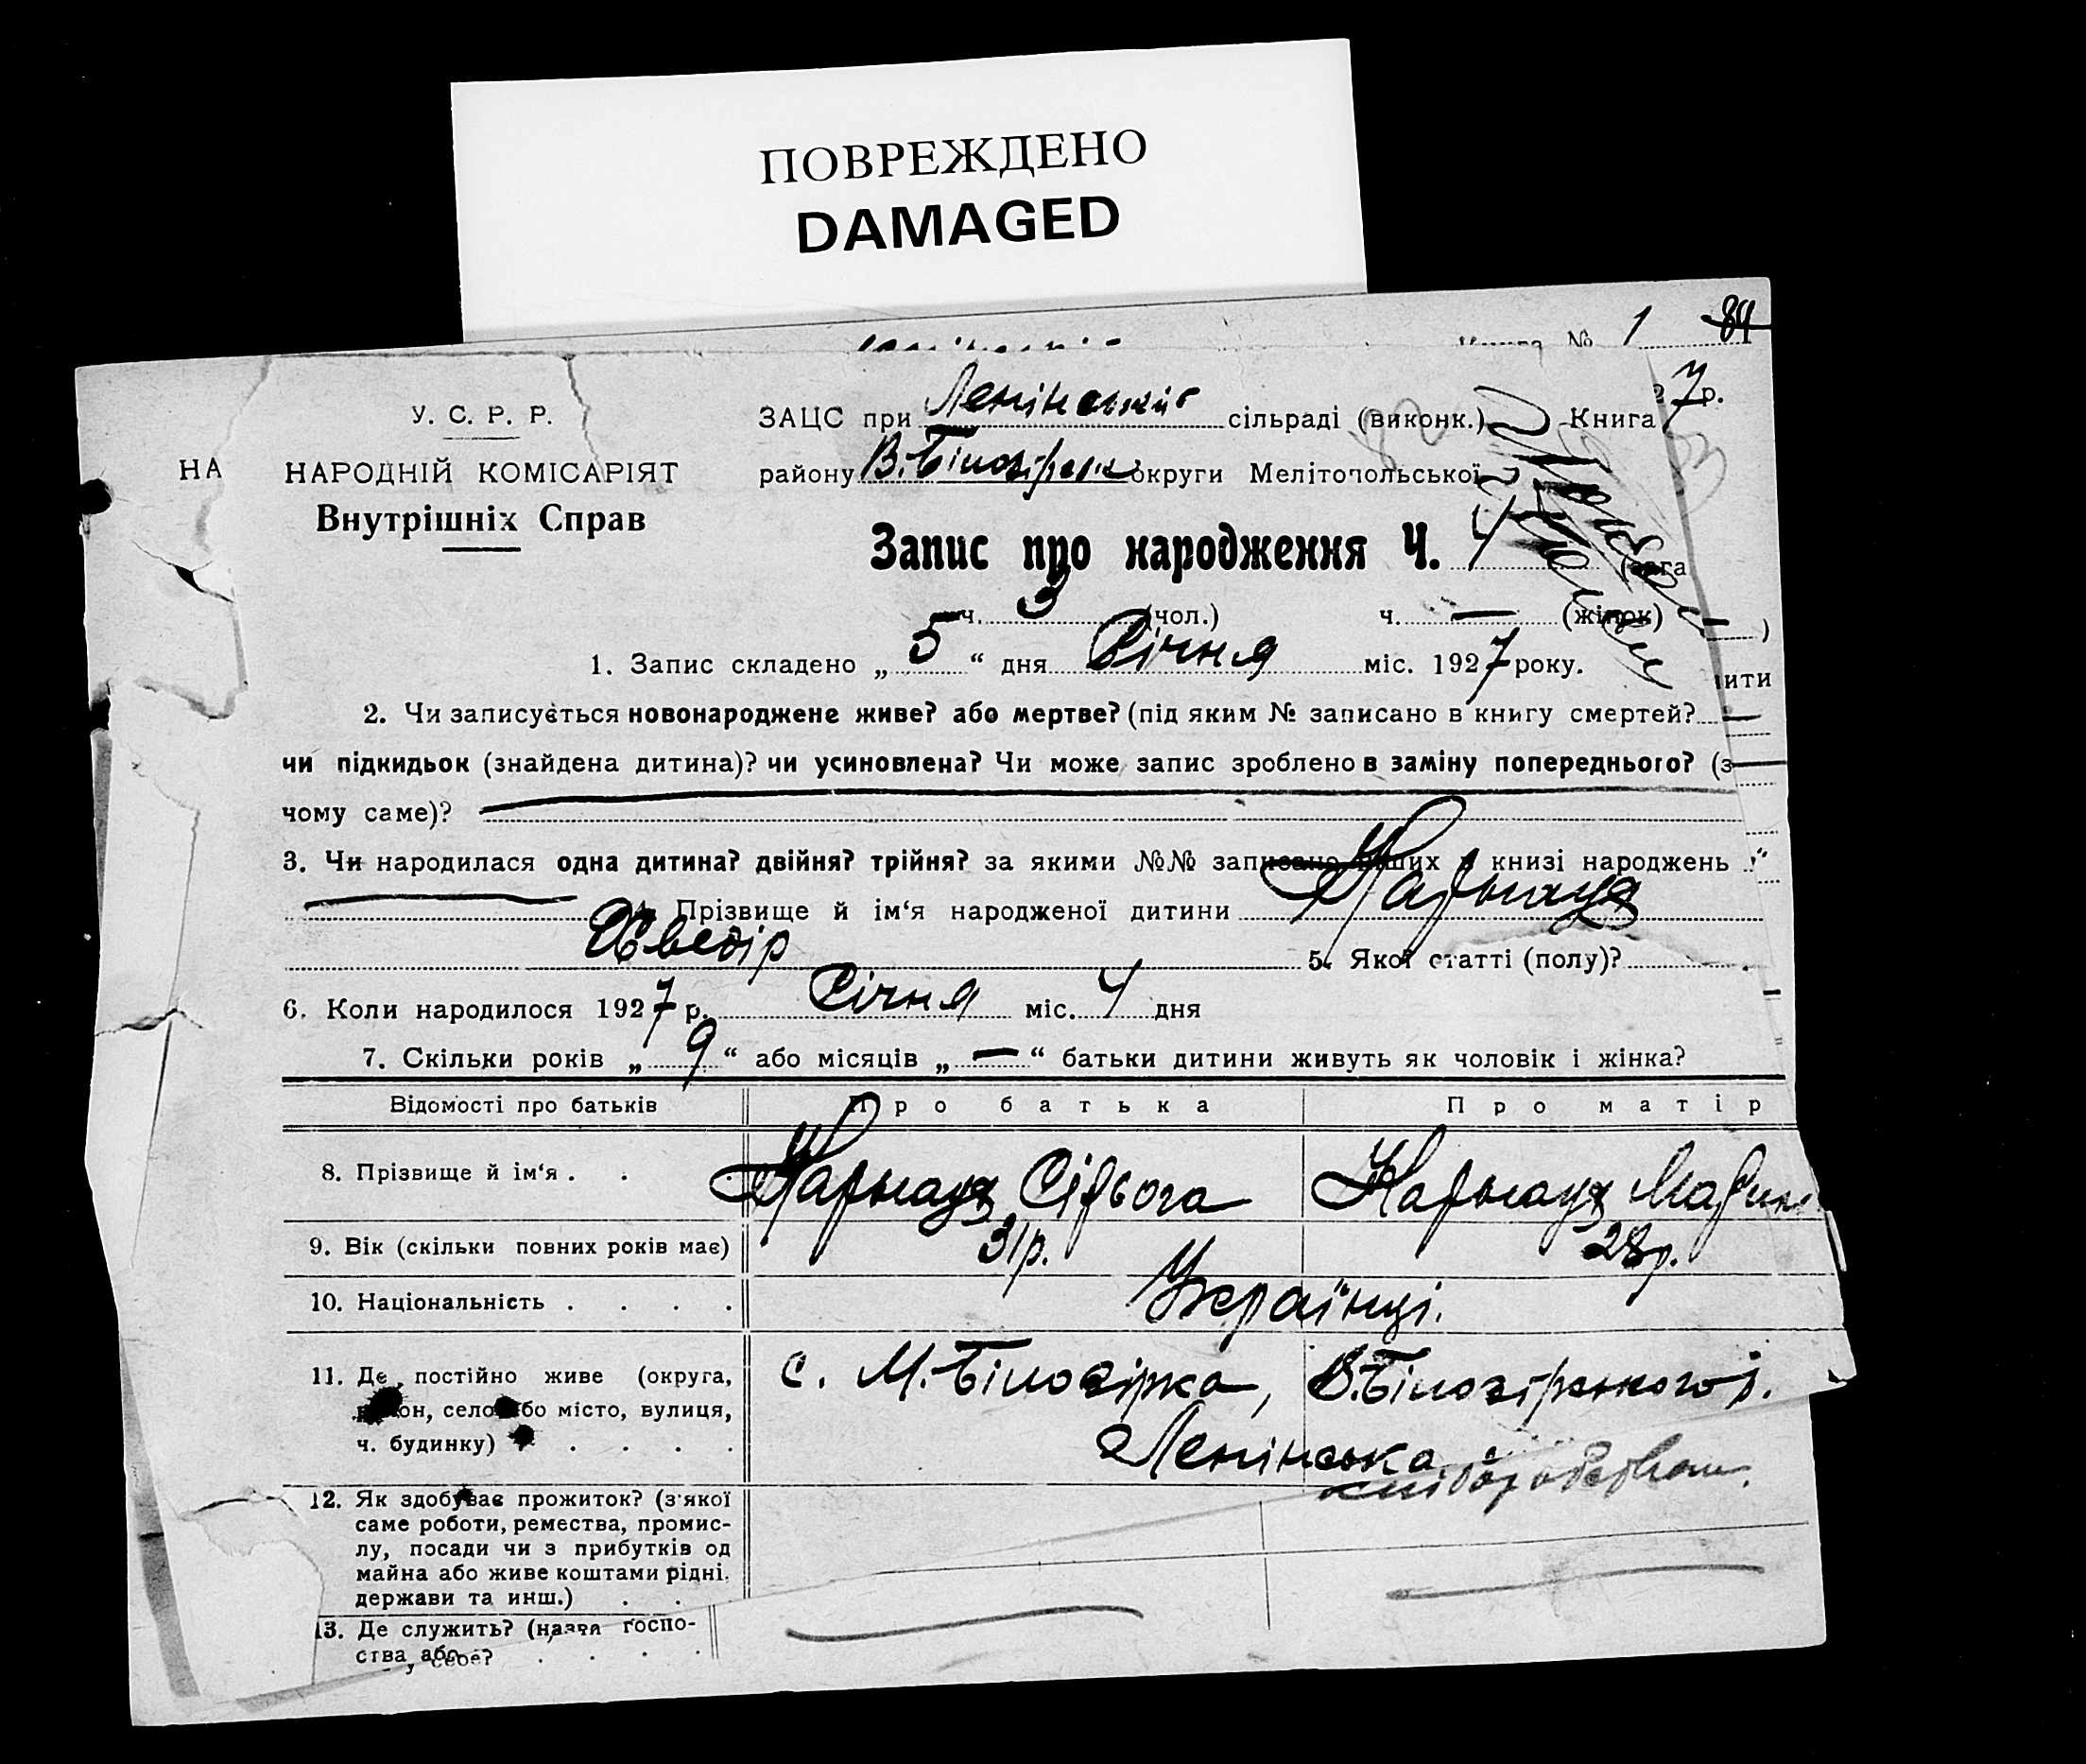 ПОВРЕЖДЕНО
DAMAGED
№ 1 84
7 р.
У. С. Р. Р.
ЗАЦС при Ленінській сільраді (виконк.) Книга
НА НАРОДНІЙ КОМІСАРІЯТ
району В.-Білозірськ округи Мелітопольської
Внутрішніх Справ
Запис про народження Ч. 4
ч. 3 (чол.) ч. — (жінок) — )
1. Запис складено „ 5 “ дня Січня міс. 1927 року.
ити
2. Чи записується новонароджене живе? або мертве? (під яким № записано в книгу смертей? —
чи підкидьок (знайдена дитина)? чи усиновлена? Чи може запис зроблено в заміну попереднього? (з
чому саме)?
3. Чи народилася одна дитина? двійня? трійня? за якими №№ записано інших у книзі народжень
4. Прізвище й ім‘я народженої дитини Карнаух
Хведір 5. Якої статті (полу)?
6. Коли народилося 1927 р. Січня міс. 4 дня
7. Скільки років „ 9 “ або місяців „ — “ батьки дитини живуть як чоловік і жінка?
Відомості про батьків Про батька Про матір
8. Прізвище й ім‘я . . Карнаух Сірьога Карнаух
9. Вік (скільки повних років має) 31 р. 28 р.
10. Національність . . . . Українці.
11. Де постійно живе (округа, с. М.-Білозірка, В.-Білозірського р.
район, село або місто, вулиця,
ч. будинку) . . . . Ленінська
12. Як здобуває прожиток? (з якої
саме роботи, ремества, промис-
лу, посади чи з прибутків од
майна або живе коштами рідні,
держави та инш.) . .
13. Де служить? (назва госпо-
ства, або
себе? . . . .